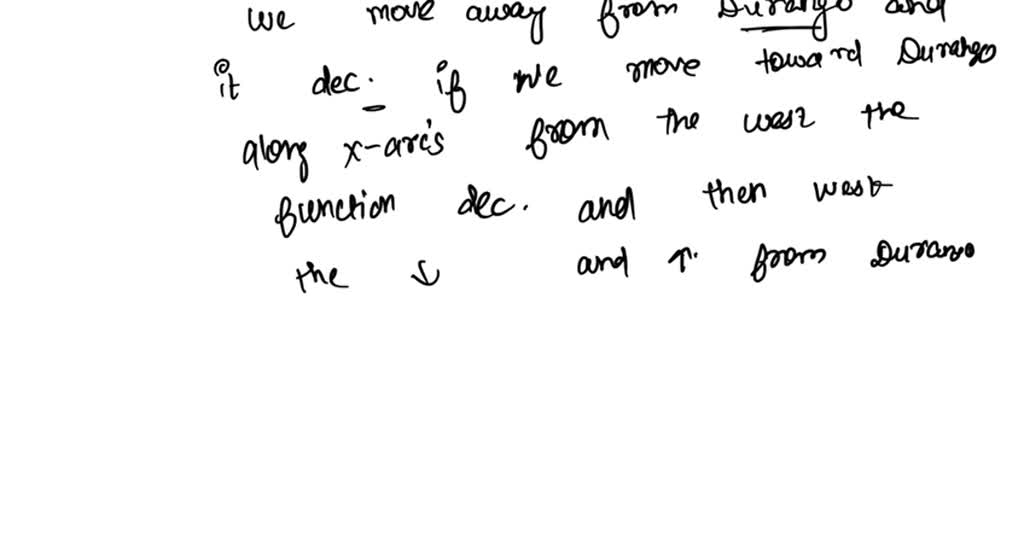 we move away from Durango and
it dec. if we move toward Durango
along x-arc's from the west the
function dec. and then west
the ↓ and ↑. from Durango